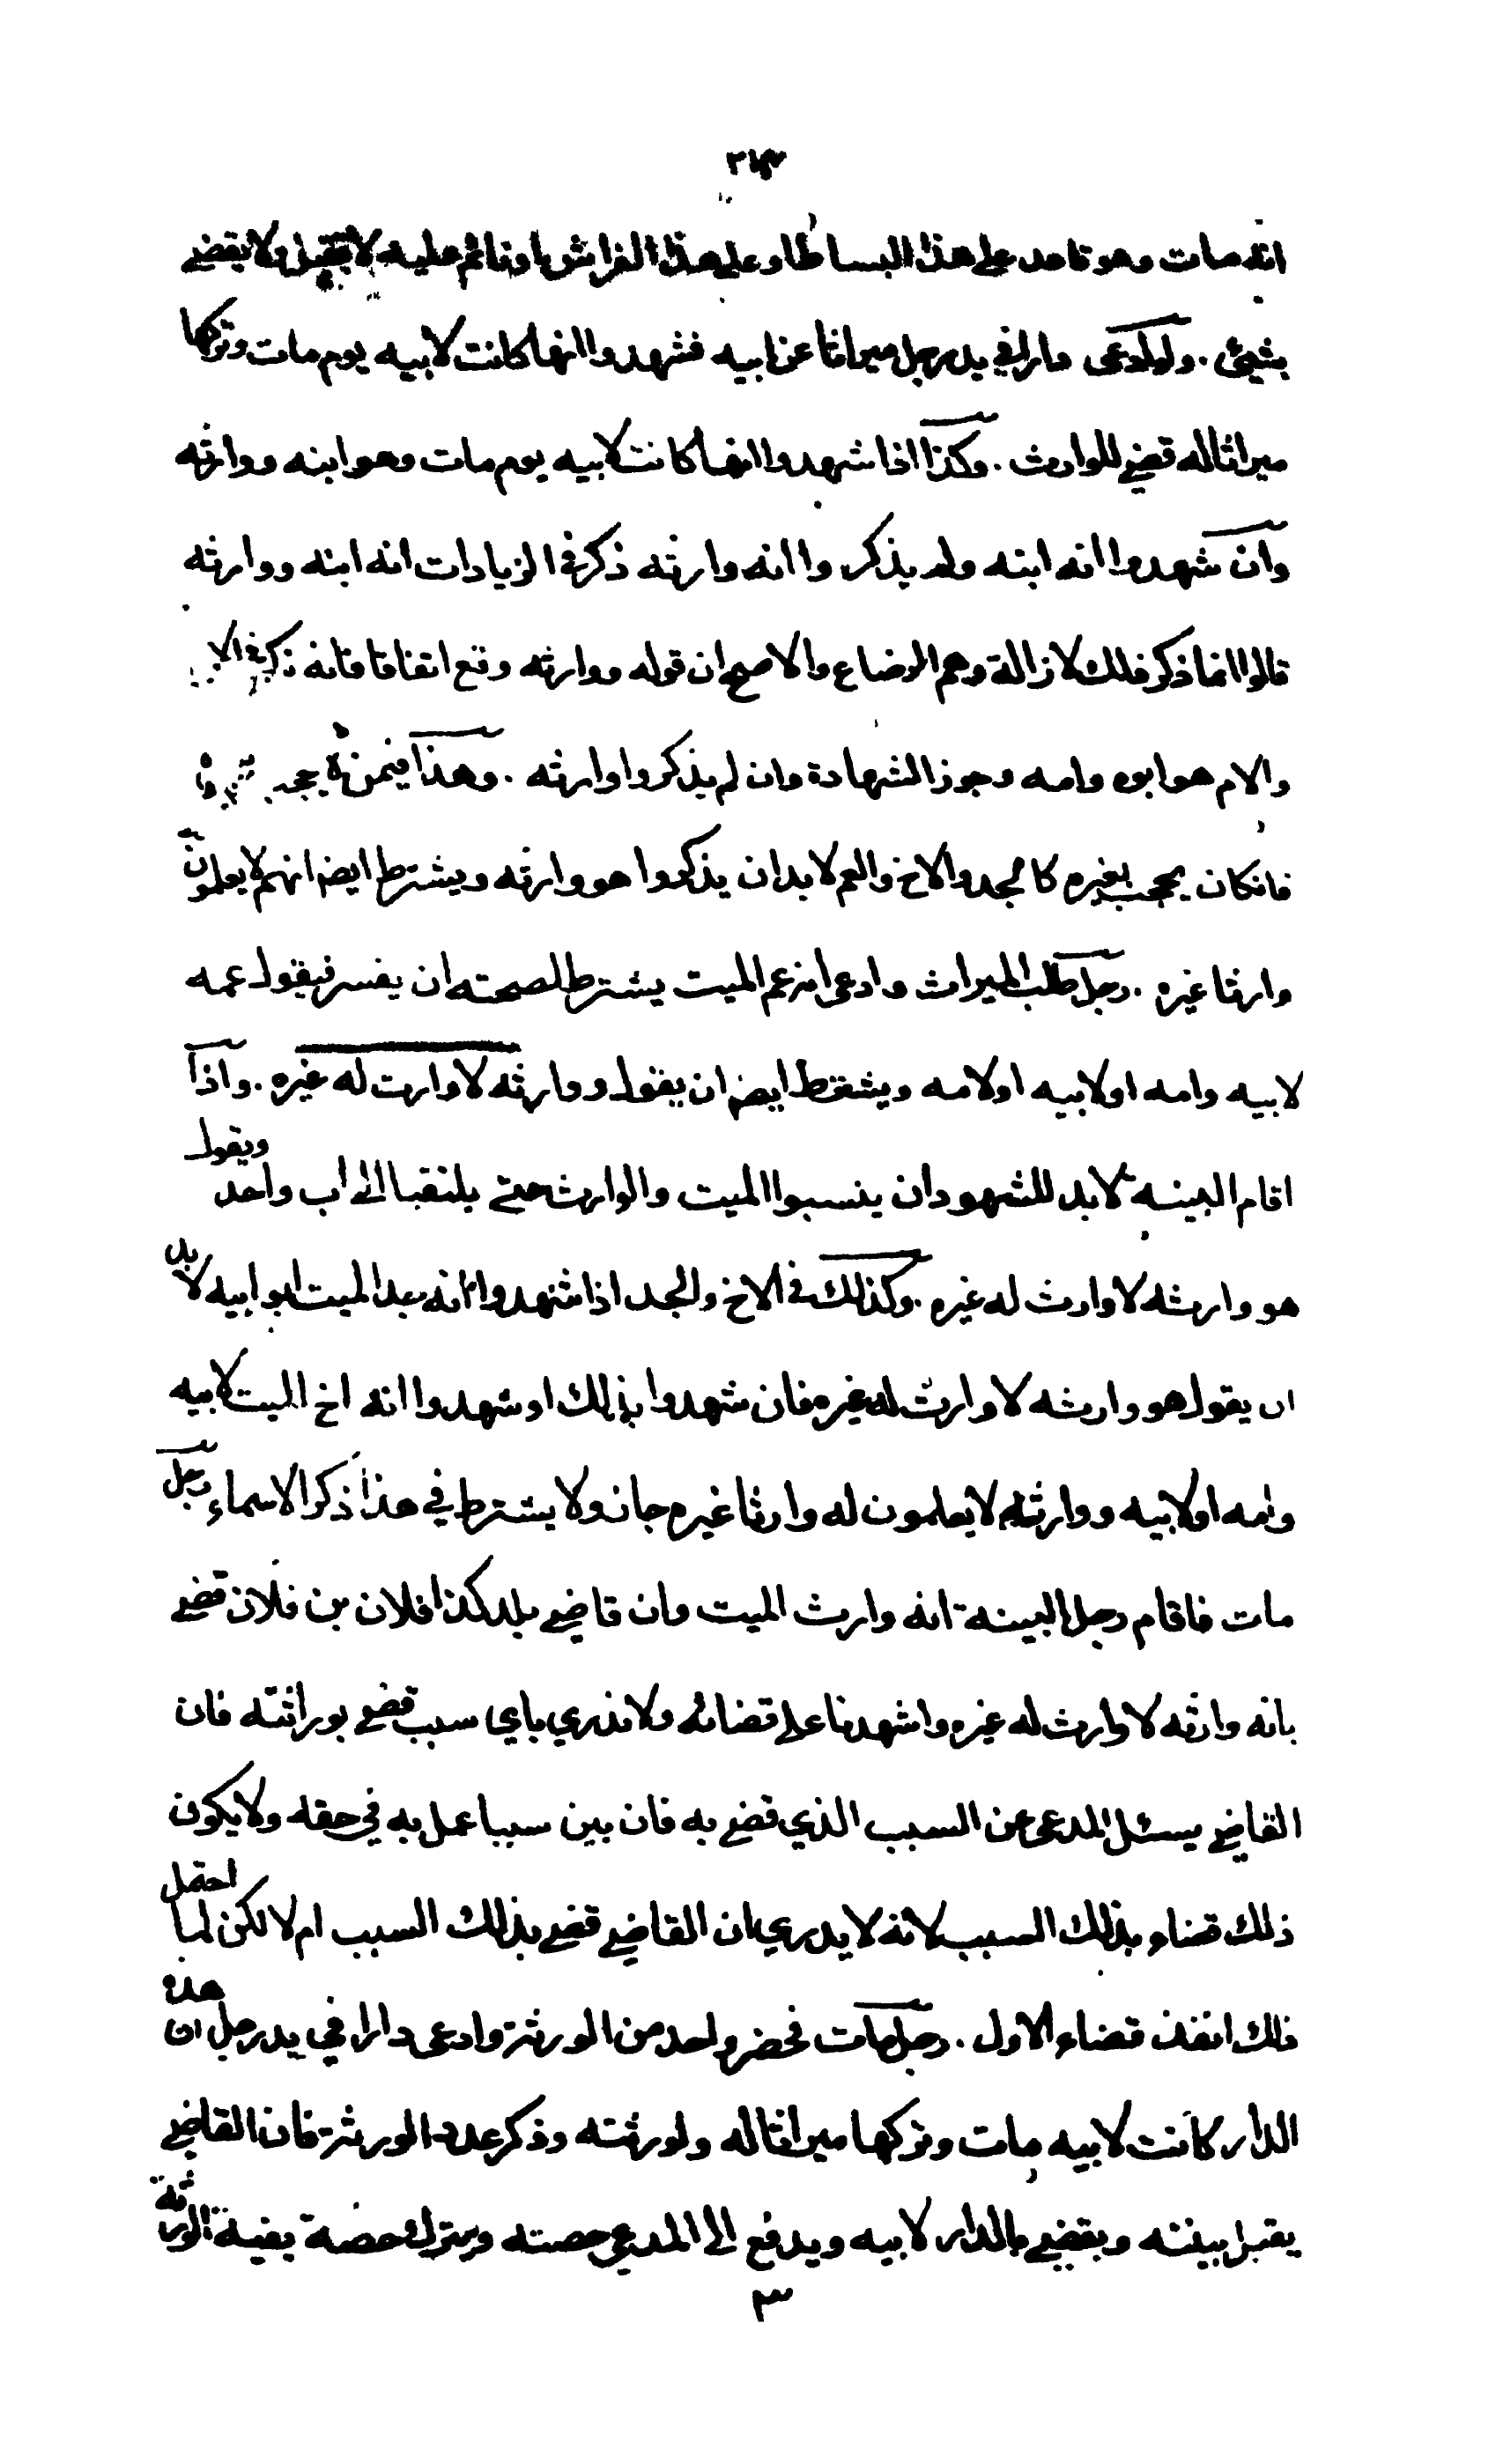 انه مات وهو قاعد على هذا البساط او على هذا الفراش او نائم عليه لا تقبل ولا يقضي
بشيئ . ولو ادعى دارا في يد رجل ميراثا عن ابيه فشهدوا انها كانت لابيه يوم مات وتركها
ميراثا له قضي للوارث . وكذا اذا شهدوا انها كانت لابيه يوم مات وهو ابنه ووارثه
وان شهدوا انه ابنه ولم يذكروا انه وارثه ذكر في الزيادات انه ابنه ووارثه
قالوا انما ذكر ذلك لازالة وهم الرضاع والاصح ان قوله ووارثه وقع اتفاقا فانه ذكر في الاب
والام هو ابوه وامه وجوز الشهادة وان لم يذكروا وارثه . وهذا فيمن لا يحجب
فان كان يحجب بغيره كالجد والاخ والعم لا بد ان يذكروا هو وارثه ويشترط ايضا انهم لا يعلمون
وارثا غيره . رجل طلب الميراث وادعى انه عم الميت يشترط لصحته ان يفسر فيقول عمه
لابيه وامه او لابيه او لامه ويشترط ايضا ان يقول ووارثه لا وارث له غيره . واذا
اقام البينه لا بد للشهود ان ينسبوا الميت والوارث حتى يلتقيا الى اب واحد ويقول
هو وارثه لا وارث له غيره . وكذلك في الاخ والجد اذا شهدوا انه جد الميت ابو ابيه لا بد
ان يقول هو وارثه لا وارث له غيره فان شهدوا بذلك او شهدوا انه اخ الميت لابيه
وامه او لابيه ووارثه لا يعلمون له وارثا غيره جاز ولا يشترط في هذا ذكر الاسماء رجل
مات فاقام رجل البينة انه وارث الميت وان قاضي بلد كذا فلان بن فلان قضي
بانه وارثه لا وارث له غيره واشهدنا على قضائه ولا ندري باي سبب قضي بوراثته فان
القاضي يسئل المدعي عن السبب الذي قضي به فان بين سببا عمل به في حقه ولا يكون
ذلك قضاء بذلك السبب لانه لا يدري ان القاضي قضي بذلك السبب ام لا لكن لما احتمل
ذلك انفذ قضاء الاول . رجل مات فحضر واحد من الورثة وادعى دارا في يد رجل ان هذه
الدار كانت لابيه مات وتركها ميراثا له ولورثته وذكر عدد الورثة فان القاضي
يقبل بينته ويقضي بالدار لابيه ويدفع الى المدعي حصته ويترك حصة بقية الورثة
٣